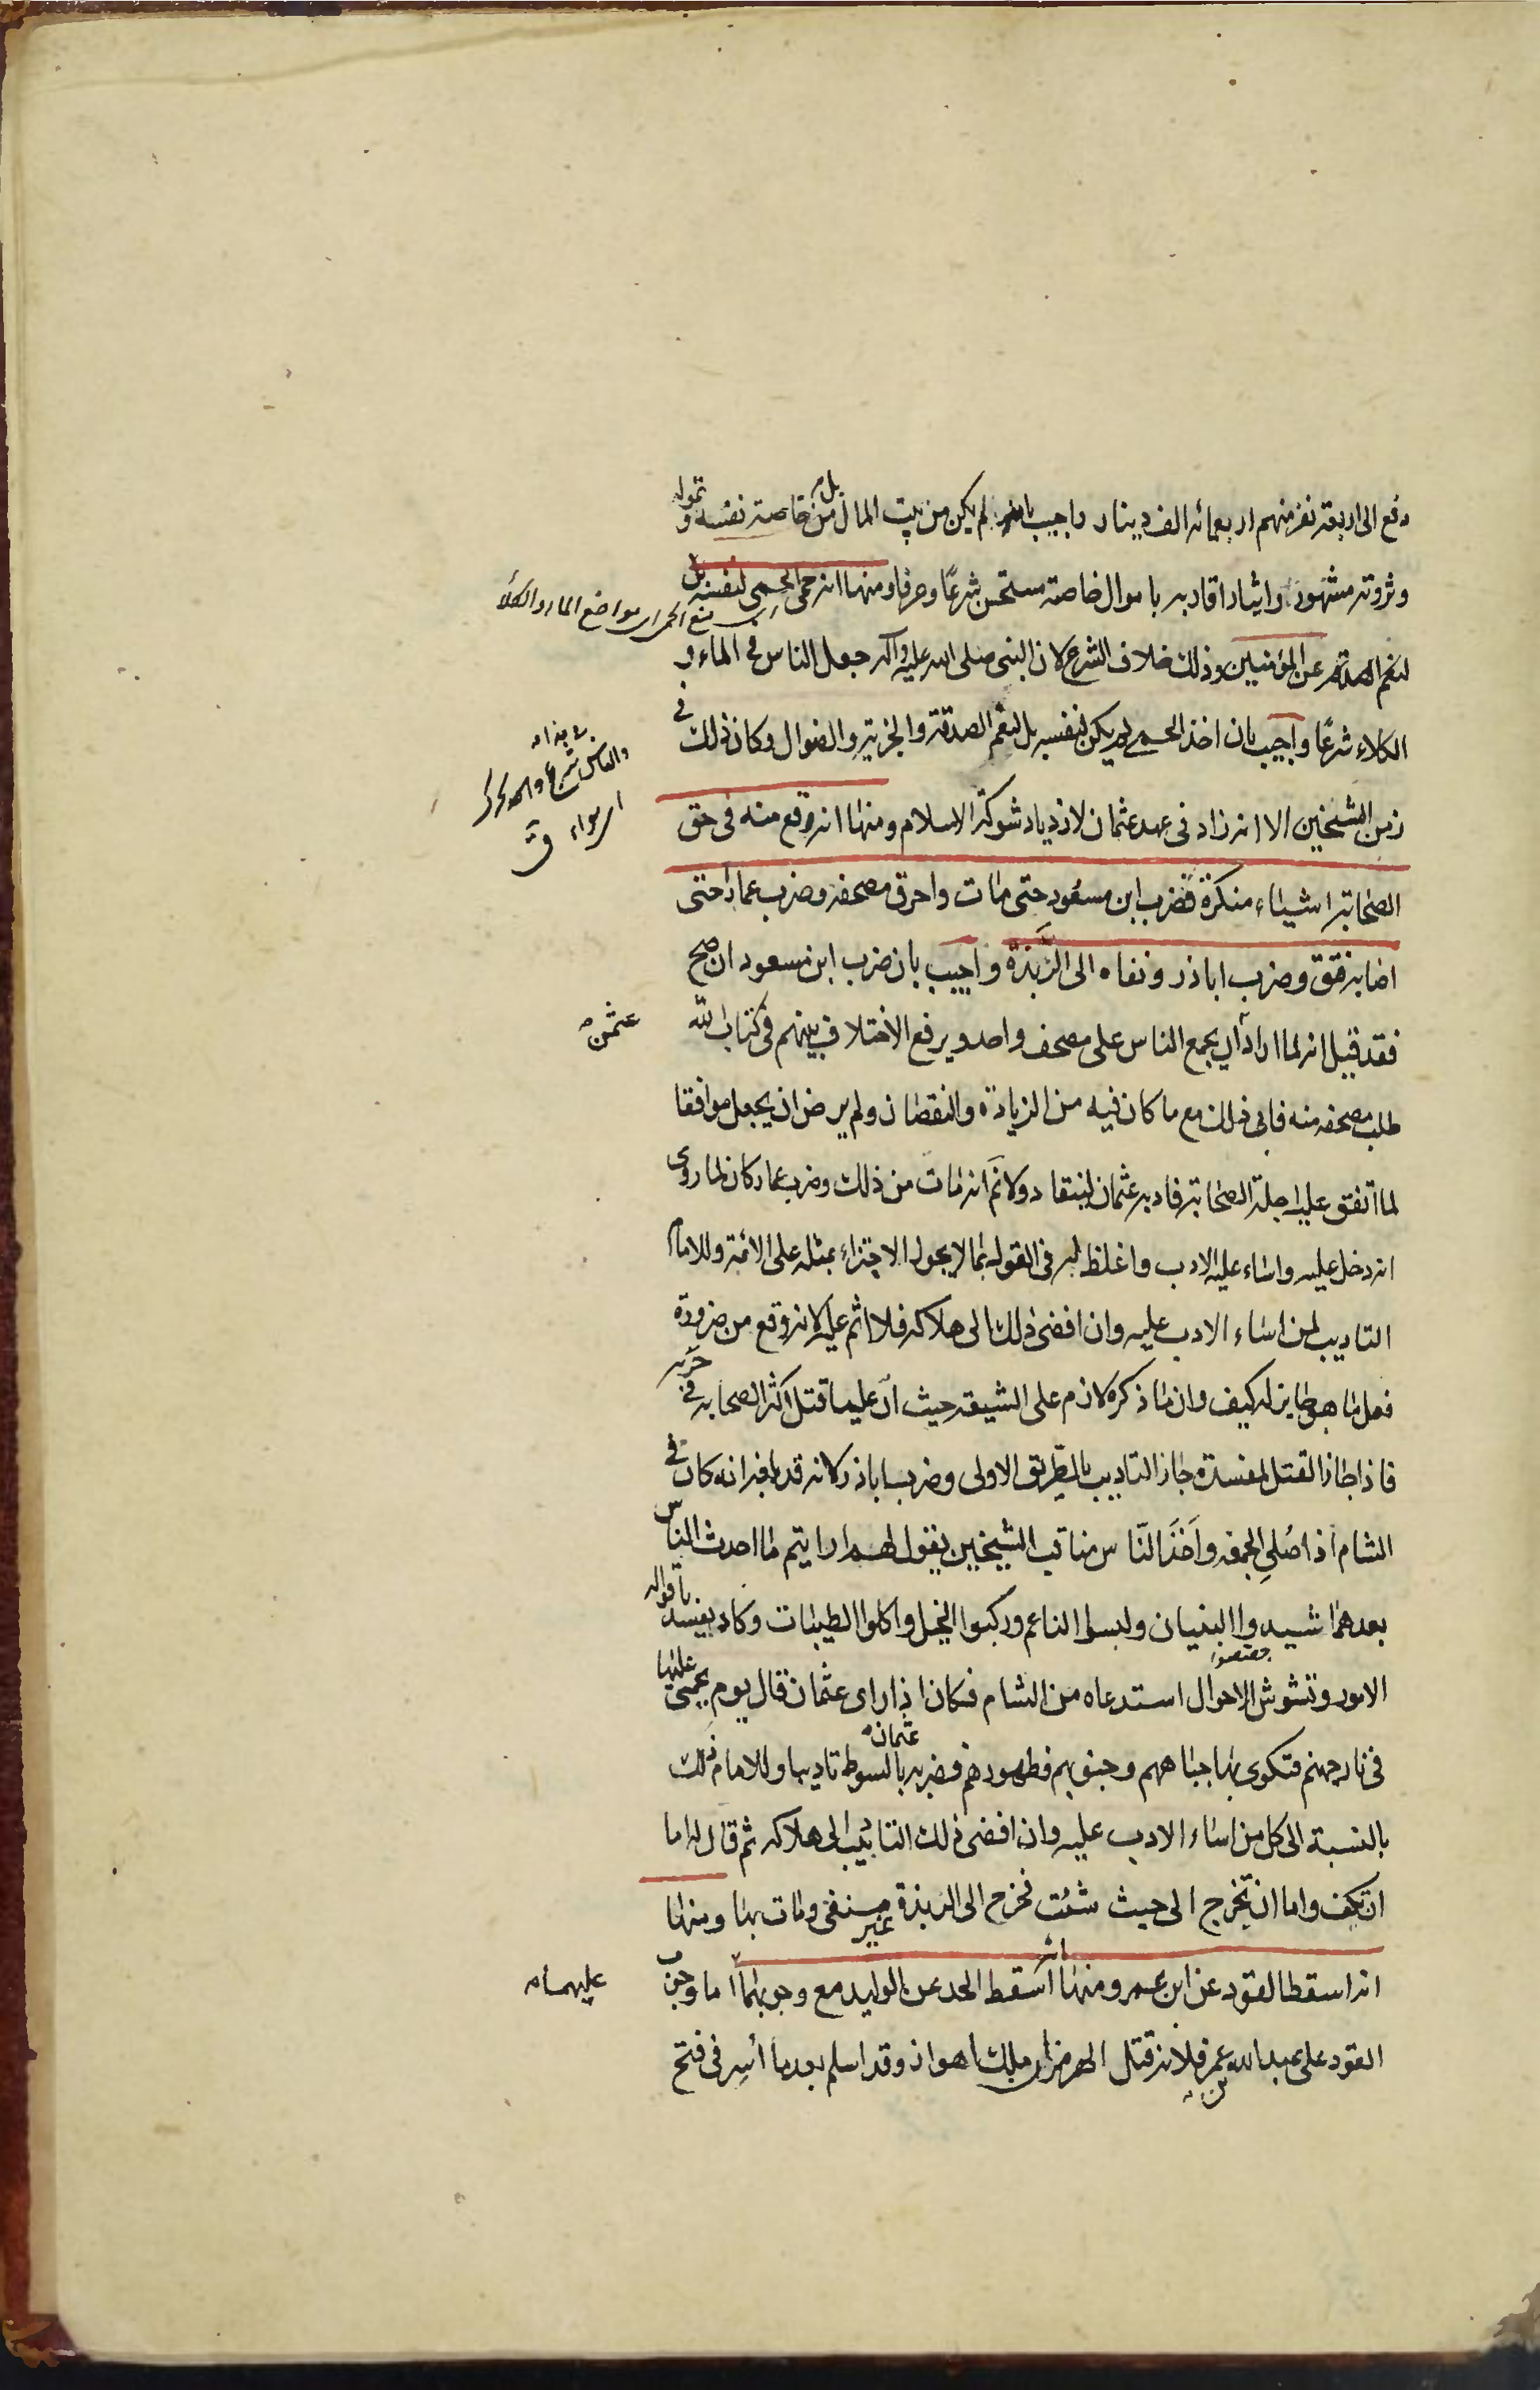 دفع الى اربعة نفر منهم اربعمائه الف دينار واجيب بانه لم يكن من بيت المال بل من خاصة نفسه و تموله
وثروته مشهورة وايثار اقاربه باموال خاصته مستحسن شرعًا وعرفا ومنها انه حمى الحمى لنفسه بل
لنعم الصدقه عن المؤمنين وذلك خلاف الشرع لان النبى صلى الله عليه واله جعل الناس فى الماء و
الكلاء شرعًا واجيب بان اخذ الحمى لم يكن لنفسه بل لنعم الصدقة والجزية والضوال وكان ذلك فى
زمن الشيخين الا انه زاد فى عهد عثمان لازدياد شوكة الاسلام ومنها انه وقع منه فى حق
الصحابة اشياء منكرة فضرب ابن مسعود حتى مات واحرق مصحفه وضرب عمارا حتى
اصابه فتق وضرب اباذر ونفاه الى الربذة واجيب بان ضرب ابن مسعود ان صح
فقد قيل انه لما اراد ان يجمع الناس على مصحف واحد ويرفع الاختلاف بينهم فى كتاب الله
طلب مصحفه منه فابى ذلك مع ما كان فيه من الزيادة والنقصان ولم يرض ان يجعل موافقا
لما اتفق عليه اجلة الصحابة فادبه عثمان لينقاد ولا نم انه مات من ذلك وضرب عمار كان لما روى
انه دخل عليه واساء عليه الادب واغلظ له فى القول بما لا يجوز الاجتراء بمثله على الائمة وللامام
التاديب لمن اساء الادب عليه وان افضى ذلك الى هلاكه فلا اثم عليه لانه وقع من ضرورة
فعل ما هو جايز له كيف وان ما ذكره لازم على الشيعة حيث ان عليا قتل اكثر الصحابه فى حربه
فاذا جاز القتل لمفسدة جاز التاديب بالطريق الاولى وضرب اباذر لانه قد بلغه انه كان فى
الشام اذا صُلى الجمعه واَخَذَ النّاس مناقب الشيخين يقول لهم ارايتم ما احدث الناس
بعدهما شيدوا البنيان ولبسوا الناعم وركبوا الخيل واكلوا الطيبات وكاد يفسد باقواله
الامور وتشوش الاحوال استدعاه من الشام فكان اذا راى عثمان قال يوم يحمى عليها
فى نار جهنم فتكوى بها جباههم وجنوبهم وظهورهم فضربه عثمان بالسوط تاديبا وللامام ذلك
بالنسبة الى كل من اساء الادب عليه وان افضى ذلك التاديب الى هلاكه ثم قال له اما
ان تكف واما ان تخرج الى حيث شئت فخرج الى الربذة غير منفى ومات بها ومنها
انه اسقط القود عن ابن عمر ومنها انه اسقط الحد عن الوليد مع وجوبهما اما وجوب
القود على عبيد الله بن عمر فلانه قتل الهرمزان ملك اهواز وقد اسلم بعد ما اُسِر فى فتح
منع الحمى اى مواضع الماء والكلاء
والناس شرع
سواء ق
عثمن
عليهما